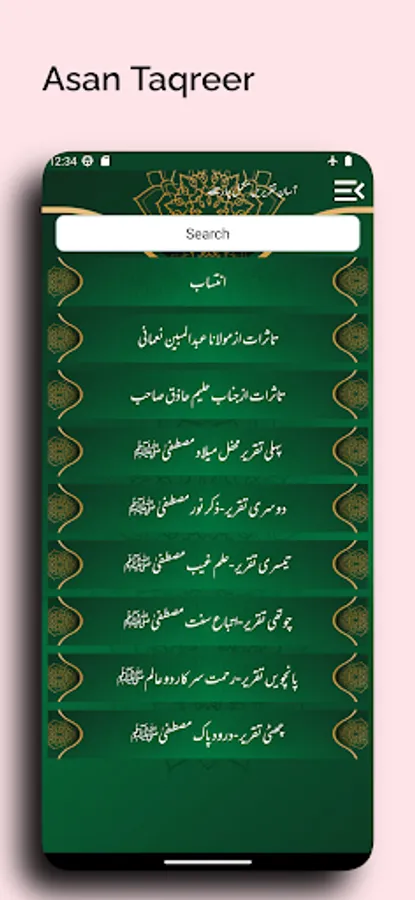 Asan Taqreer
12:34
آسان تقریریں مکمل چار حصے
Search
انتساب
تاثرات از مولانا عبدالمبین نعمانی
تاثرات از جناب علیم حاذق صاحب
پہلی تقریر محفل میلاد مصطفیٰ ﷺ
دوسری تقریر-ذکر نور مصطفیٰ ﷺ
تیسری تقریر-علم غیب مصطفیٰ ﷺ
چوتھی تقریر-اتباع سنت مصطفیٰ ﷺ
پانچویں تقریر-رحمت سرکار دوعالم ﷺ
چھٹی تقریر-درود پاک مصطفیٰ ﷺ